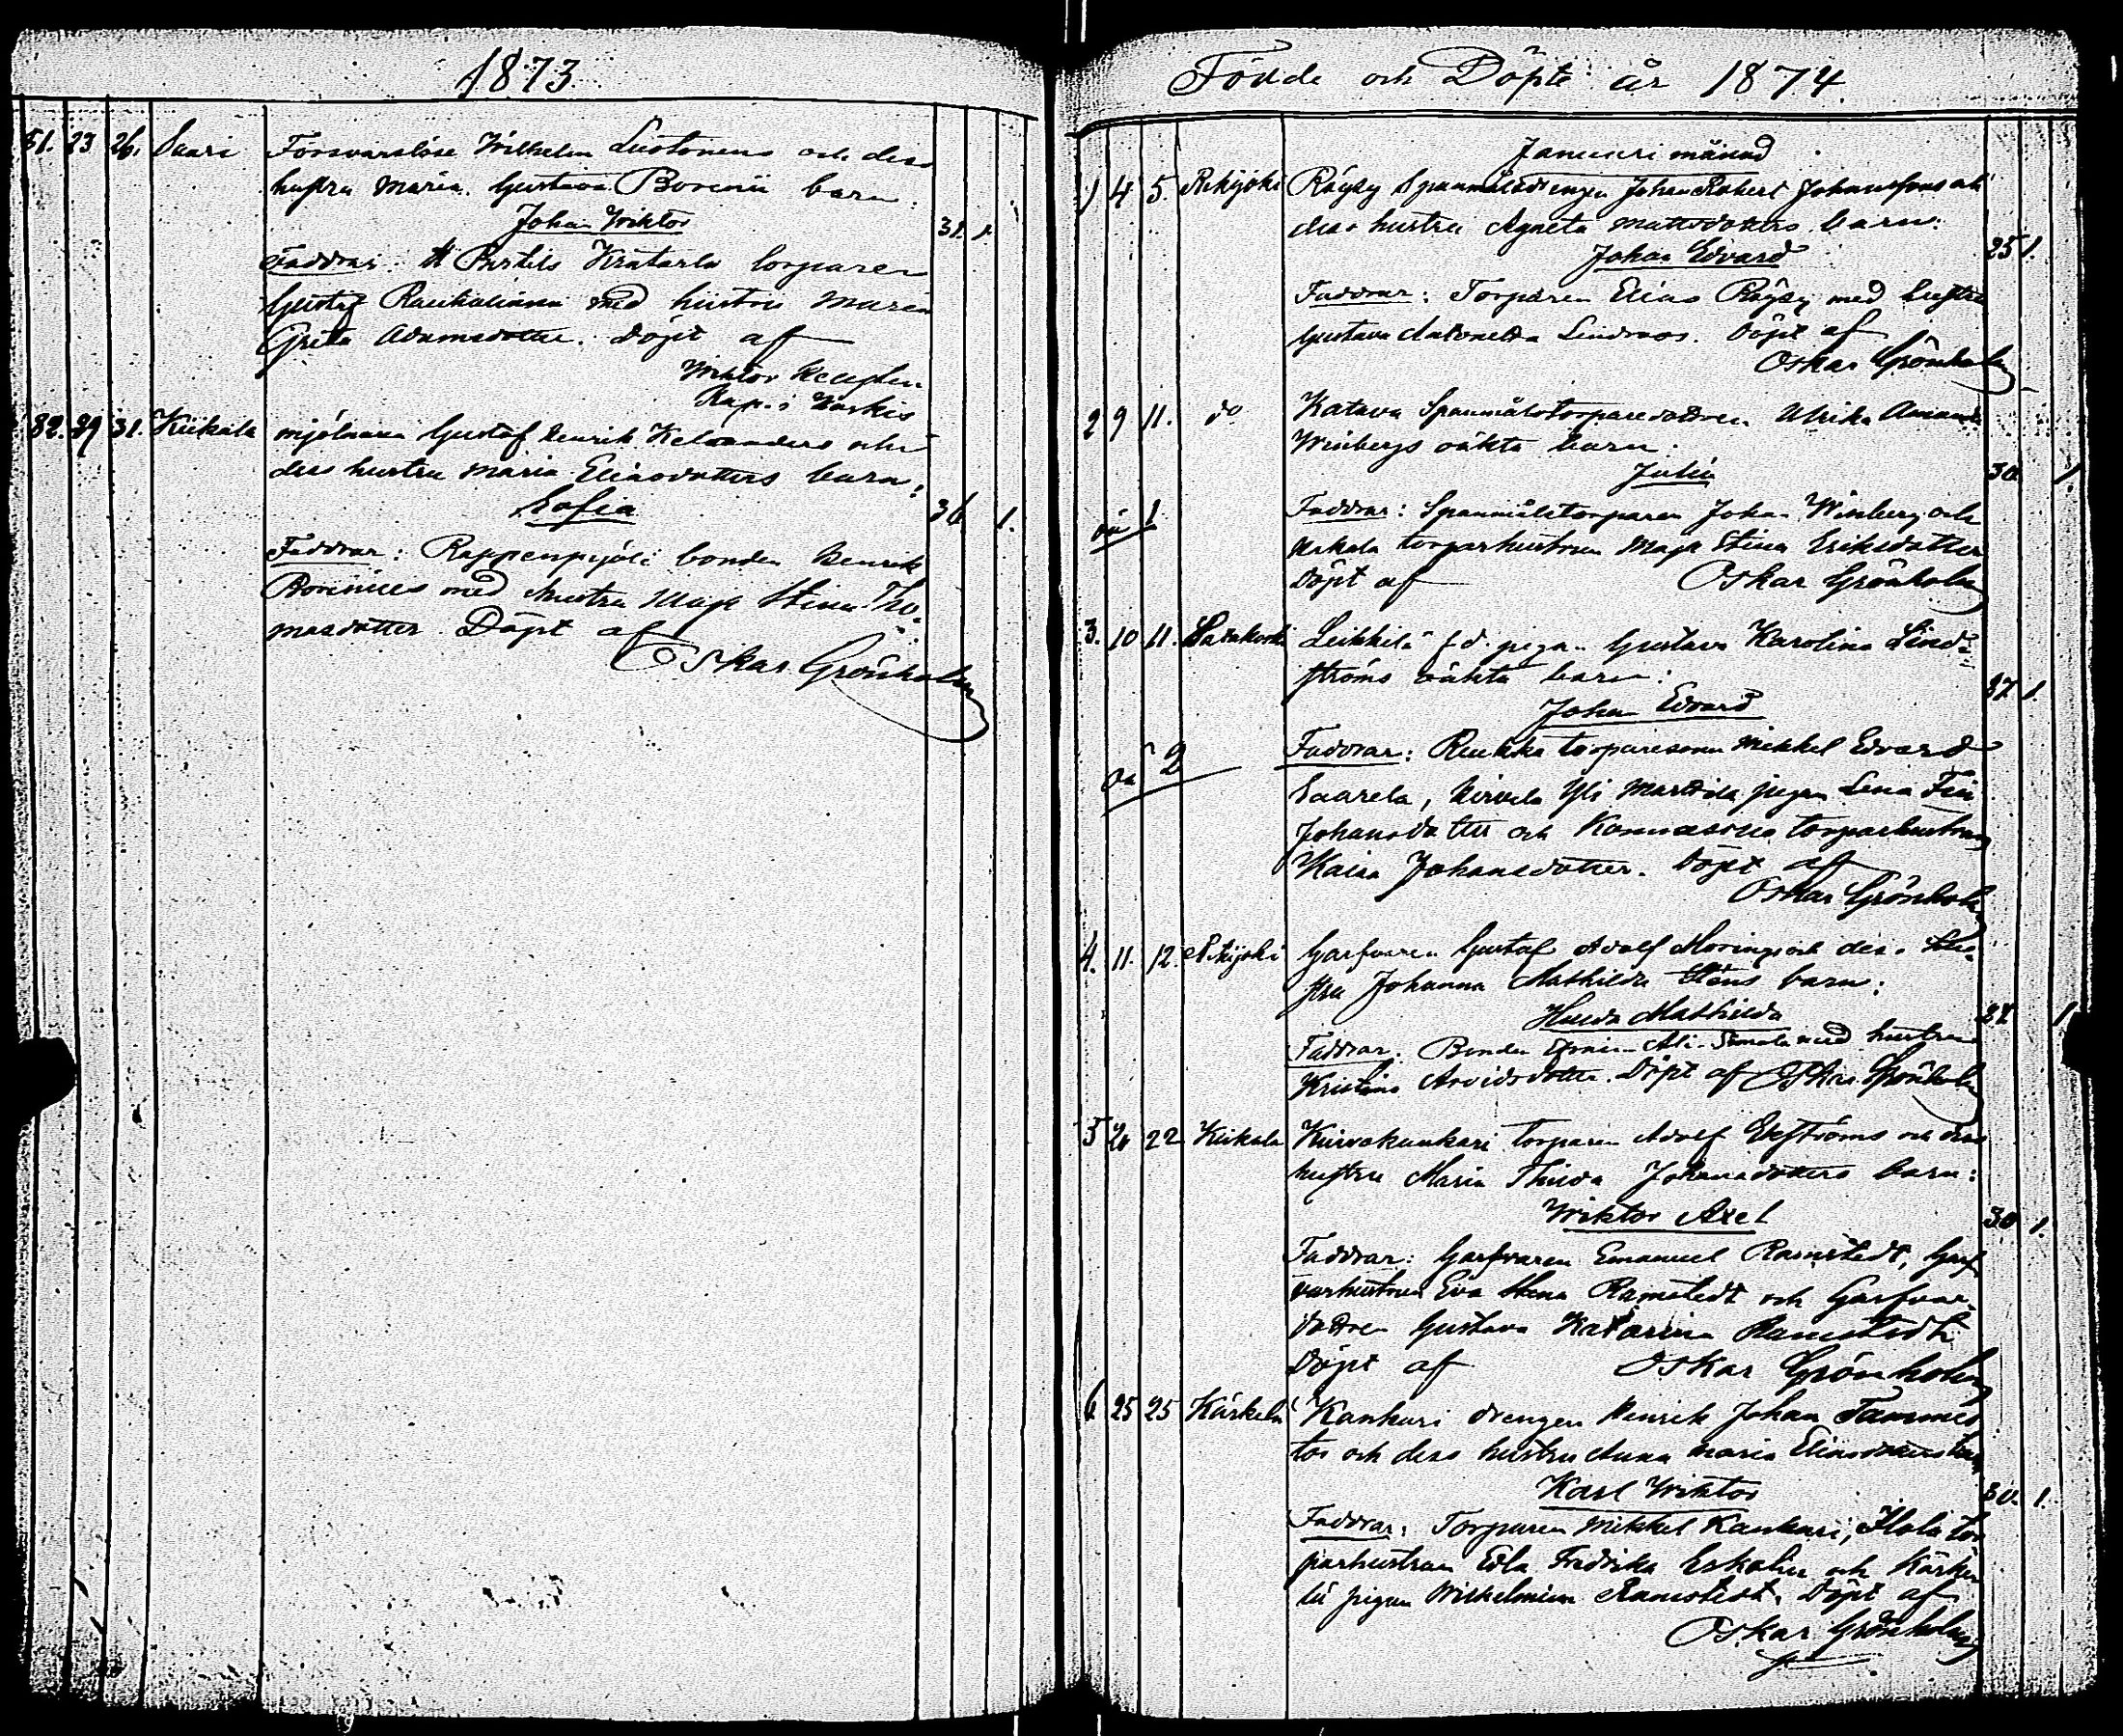 1873
51. 23 26. Saari Försvarslöse Wilhelm Luotonens och dess
hustru Maria Gustava Borenii barn:
Johan Wiktor 31. 1.
Faddrar: Pertils torparen
Gustaf med hustru Maria
Greta Adamsdotter. Döpt af
Wiktor
Kap. i
52. 29 31. Kiikala mjölnaren Gustaf Henrik och
dess hustru Maria Eliasdotters barn:
Sofia 36 1.
Faddrar: bonden Henrik
Borenius med hustru Maja Stina Tho-
masdotter. Döpt af
Oskar Grönholm
Födde och Döpte år 1874.
Januari månad
1 4 5. Rekijoki Räysy Spanmålsdrengen Johan Robert Johanssons och
dess hustru Agneta Mattsdotters barn:
Johan Edvard 25 1.
Faddrar: Torparen Elias Räysy med hustru
Gustava Lindroos. Döpt af
Oskar Grönholm
2 9 11. do Katava Spanmålstorparedottren Ulrika Amanda
Winbergs oäkta barn:
Julia 30. 1.
oä 1
Faddrar: Spanmålstorparen Johan Winberg och
torparhustrun Maja Stina Eriksdotter
Döpt af Oskar Grönholm
3. 10 11. Leikkilä f.d. pigan Gustava Karolina Lind-
ströms oäkta barn:
Johan Edvard 37 1.
oä 2
Faddrar: torparesonen Mikkel Edvard
Saarela, Yli Marttila pigan Lena
Johansdotter och torparhustrun
Kaisa Johansdotter. Döpt af
Oskar Grönholm
4. 11. 12. Rekijoki Garfvaren Gustaf Adolf Morings och dess hu-
stru Johanna Mathilda Sténs barn:
Hulda Mathilda 32 1
Faddrar: Bonden Efraim Ali-Simola med hustru
Kristina Arvidsdotter. Döpt af Oskar Grönholm
5 20 22 Kiikala torparen Adolf Ekströms och dess
hustru Maria Johansdotters barn:
Wiktor Axel 30 1.
Faddrar: Garfvaren Emanuel Ramstedt, Garf-
varhustrun Eva Stina Ramstedt och Garfvar-
dottren Gustava Katarina Ramstedt.
Döpt af Oskar Grönholm
6 25 25 Kärkelä Kankari drengen Henrik Johan Tammis-
tos och dess hustru Anna Maria Eliasdotters barn
Karl Wiktor 30. 1.
Faddrar: Torparen Mikkel Kankari, tor-
parhustrun Edla Fredrika Eskolin och Kärke-
lä pigan Wilhelmina Ramstedt. Döpt af
Oskar Grönholm